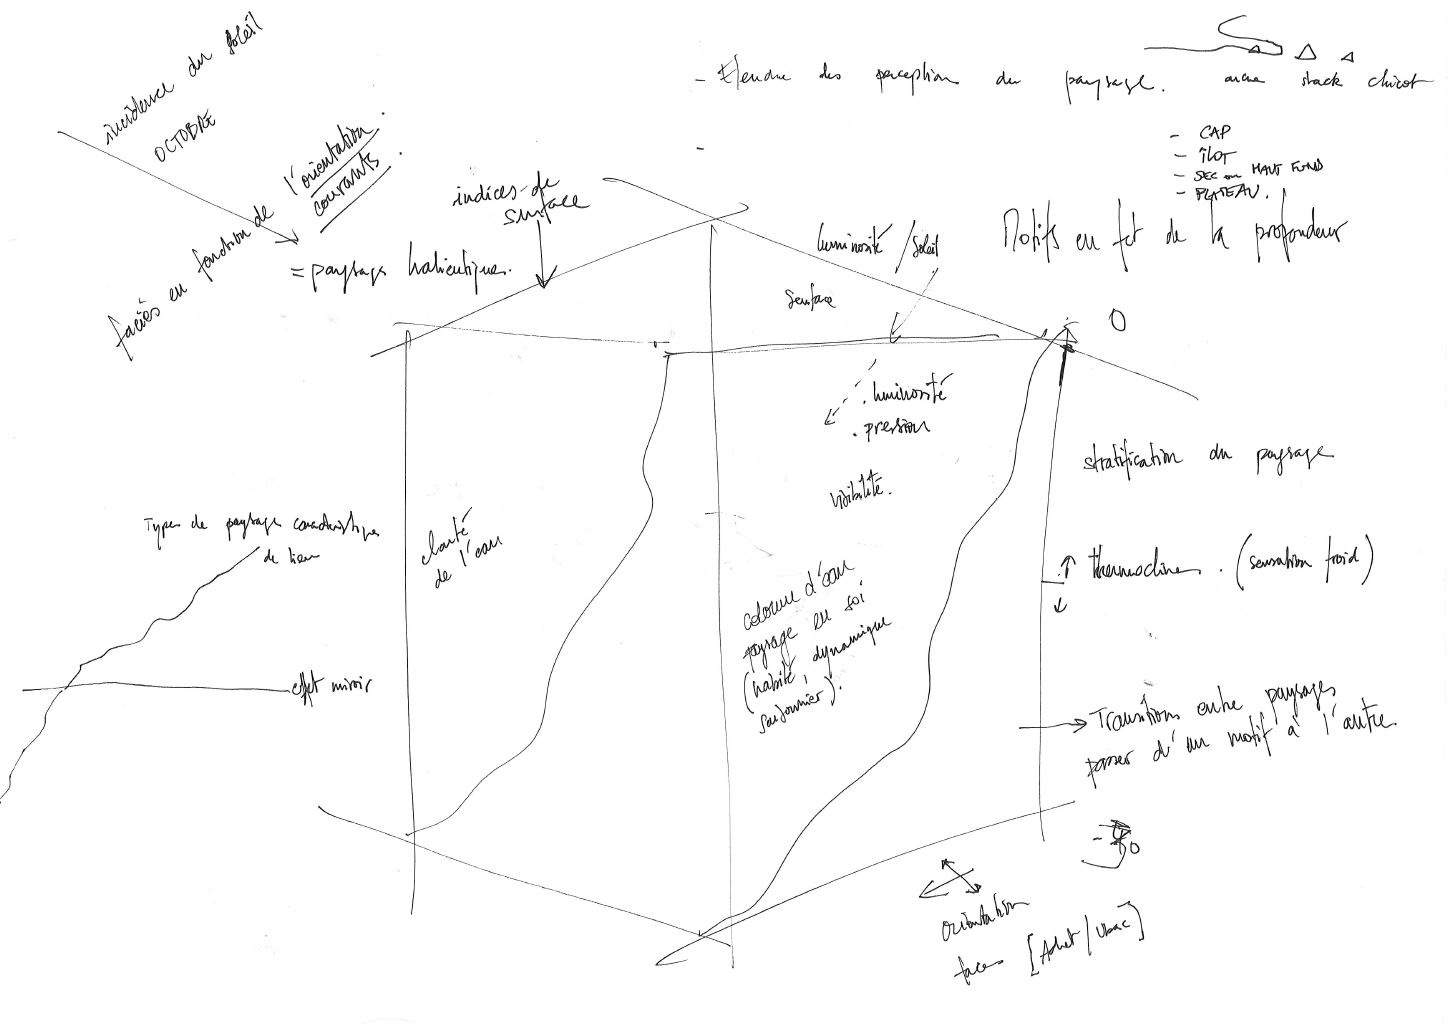 incidence du soleil
OCTOBRE
faciès en fonction de l'orientation.
courants.
= paysages halieutiques.
indices de
surface
- Etendue des perception du paysage.
arche stack chicot
-
- CAP
- ÎLOT
- SEC ou HAUT FOND
- PLATEAU.
Motifs en fct de la profondeur
luminosité / soleil
surface
0
. luminosité
. pression
visibilité.
stratification du paysage
clarté
de l'eau
Types de paysages caractéristiques
de lieu
effet miroir
colonne d'eau
paysage en soi
(habité, dynamique
saisonnier).
thermoclines. (sensation froid)
Transitions entre paysages
passer d'un motif à l'autre.
orientation
faces [Adret / Ubac]